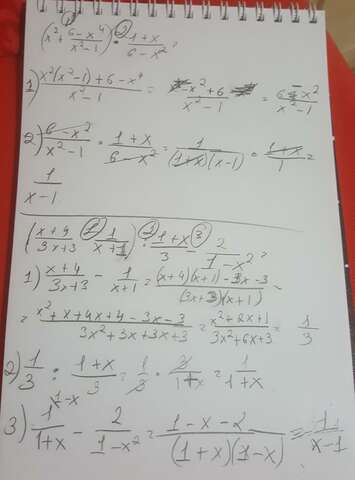 (x² + (6-x⁴)/(x²-1)) · (1+x)/(6-x²) =
1) (x²(x²-1)+6-x⁴)/(x²-1) = (-x²+6)/(x²-1) = (6-x²)/(x²-1)
2) (6-x²)/(x²-1) · (1+x)/(6-x²) = 1/((1+x)(x-1)) · (1+x)/1 =
1/(x-1)
((x+4)/(3x+3) - 1/(x+1)) : (1+x)/3 - 2/(1-x²) =
1) (x+4)/(3x+3) - 1/(x+1) = ((x+4)(x+1)-3x-3)/((3x+3)(x+1)) =
= (x²+x+4x+4-3x-3)/(3x²+3x+3x+3) = (x²+2x+1)/(3x²+6x+3) = 1/3
2) 1/3 : (1+x)/3 = 1/3 · 3/(1+x) = 1/(1+x)
1-x
3) 1/(1+x) - 2/(1-x²) = (1-x-2)/((1+x)(1-x)) = 1/(x-1)